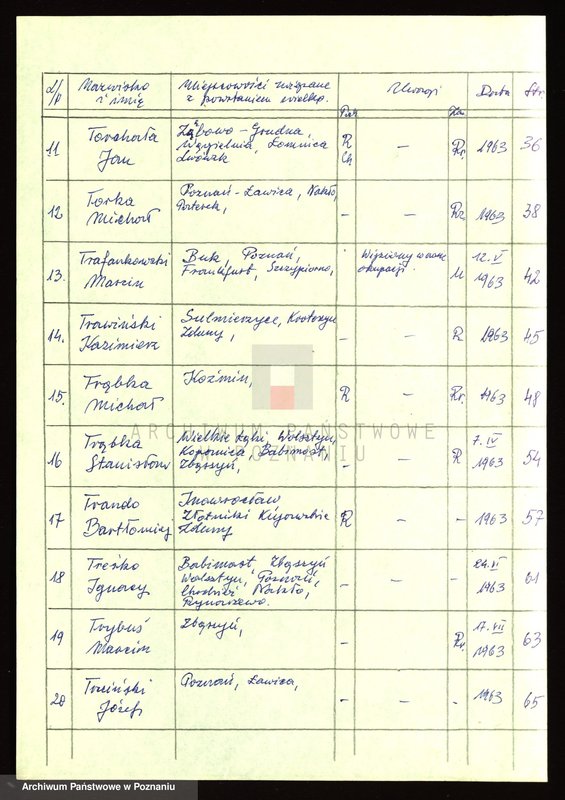 L/p Nazwisko i imię Miejscowości związane z powstaniem wielkp. Uwagi Data Str.
11 Torchała Jan Ząbowo - Grudna, Wągielnia, Łomnica Lwówek R - Rr. 1963 36
12 Torka Michał Poznań - Ławica, Nakło, - - Rr 1963 38
13. Trafankowski Marcin Buk, Poznań, Frankfurt, Szczypiorno, Więziony w czasie okupacji. M 12.V 1963 42
14. Trawiński Kazimierz Sulmierzyce, Krotoszyn Zduny, - - R 1963 45
15. Trąbka Michał Koźmin, R - Rr. 1963 48
ARCHIWUM PAŃSTWOWE
W POZNANIU
16 Trąbka Stanisław Wielkie Łęki, Wolsztyn, Kopanica, Babimost, Zbąszyń, R 7.IV 1963 54
17 Trando Bartłomiej Inowrocław Złotniki Kujawskie Zduny R - - 1963 57
18 Treśko Ignacy Babimost, Zbąszyń Wolsztyn, Poznań, Chodzież, Nakło, Rynarzewo. - - - 24.VI 1963 61
19 Trybuś Marcin Zbąszyń, - Rr. 17.VII 1963 63
20 Józef Poznań, Ławica, - - - 1963 65
Archiwum Państwowe w Poznaniu